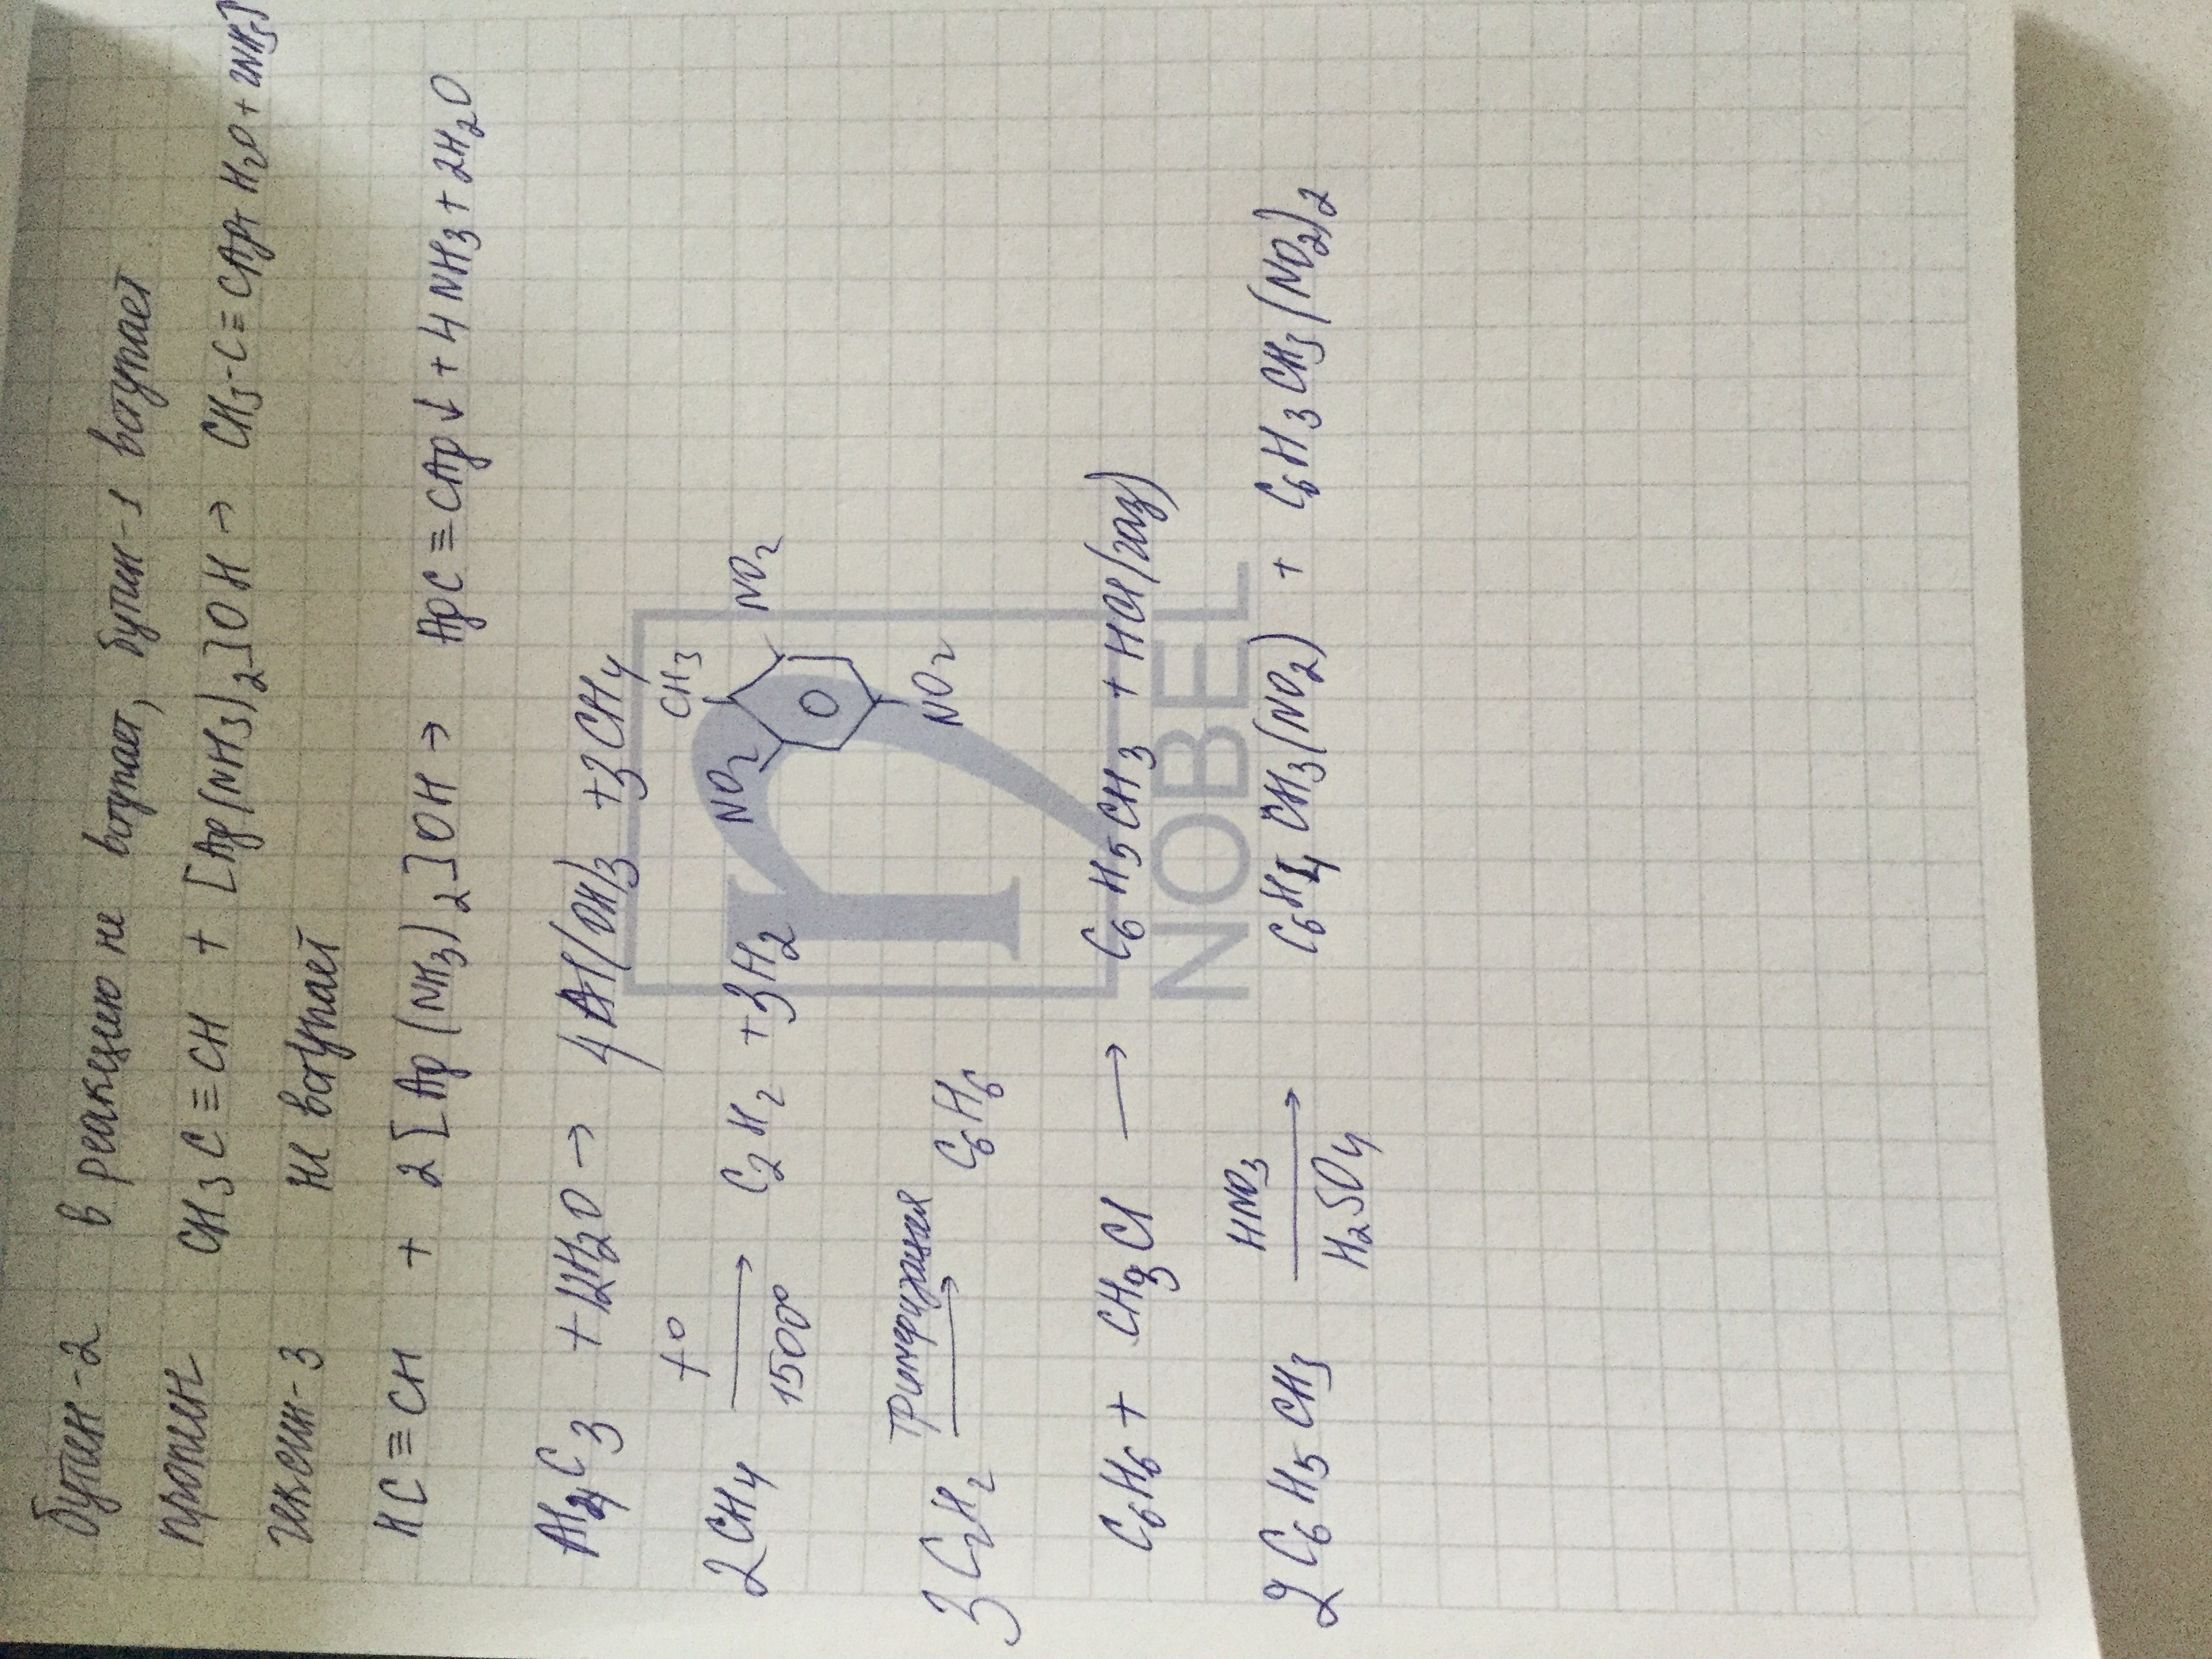 бутин-2 в реакцию не вступает, бутин-1 вступает
пропин CH3C≡CH + [Ag(NH3)2]OH → CH3-C≡CAg+ H2O + 2NH3
гексин-3 не вступает
HC≡CH + 2[Ag(NH3)2]OH → AgC≡CAg↓ + 4NH3 + 2H2O
Al4C3 + 12H2O → 4Al(OH)3 + 3CH4
2CH4 t° 1500° → C2H2 + 3H2
CH3
NO2 NO2
NO2
3C2H2 Тримеризация → C6H6
C6H6 + CH3Cl → C6H5CH3 + HCl(газ)
2C6H5CH3 HNO3 H2SO4 → C6H4CH3(NO2) + C6H3CH3(NO2)2
n
NOBEL